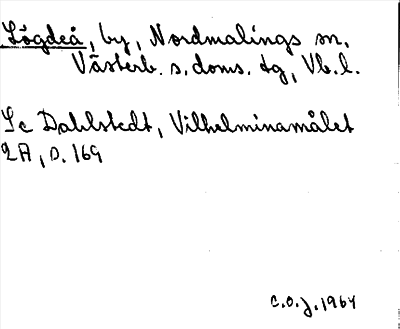 Lögdeå, by, Nordmalings sn,
Västerb. s. doms. tg, Vb. l.
Se Dahlstedt, Vilhelminamålet
2A, s. 169
C.O.J. 1964